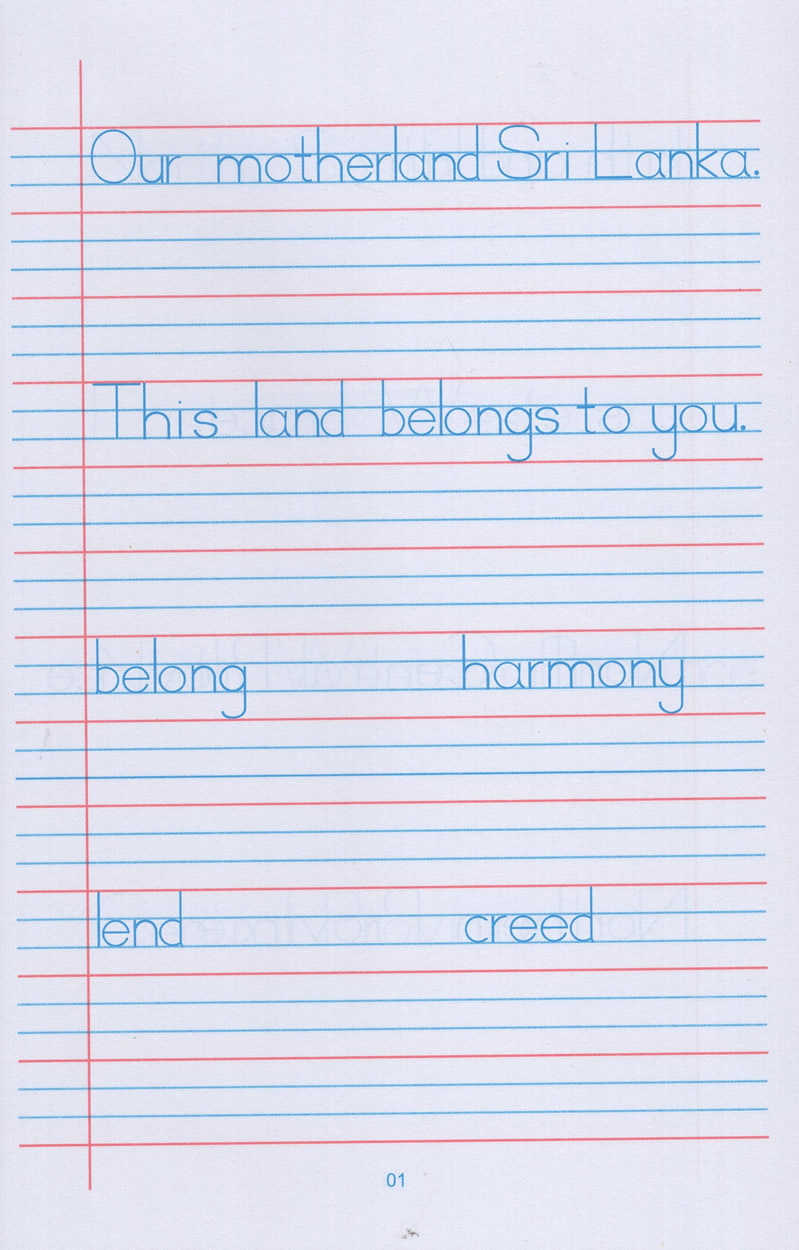 Our motherland Sri Lanka.
This land belongs to you.
belong harmony
lend creed
01